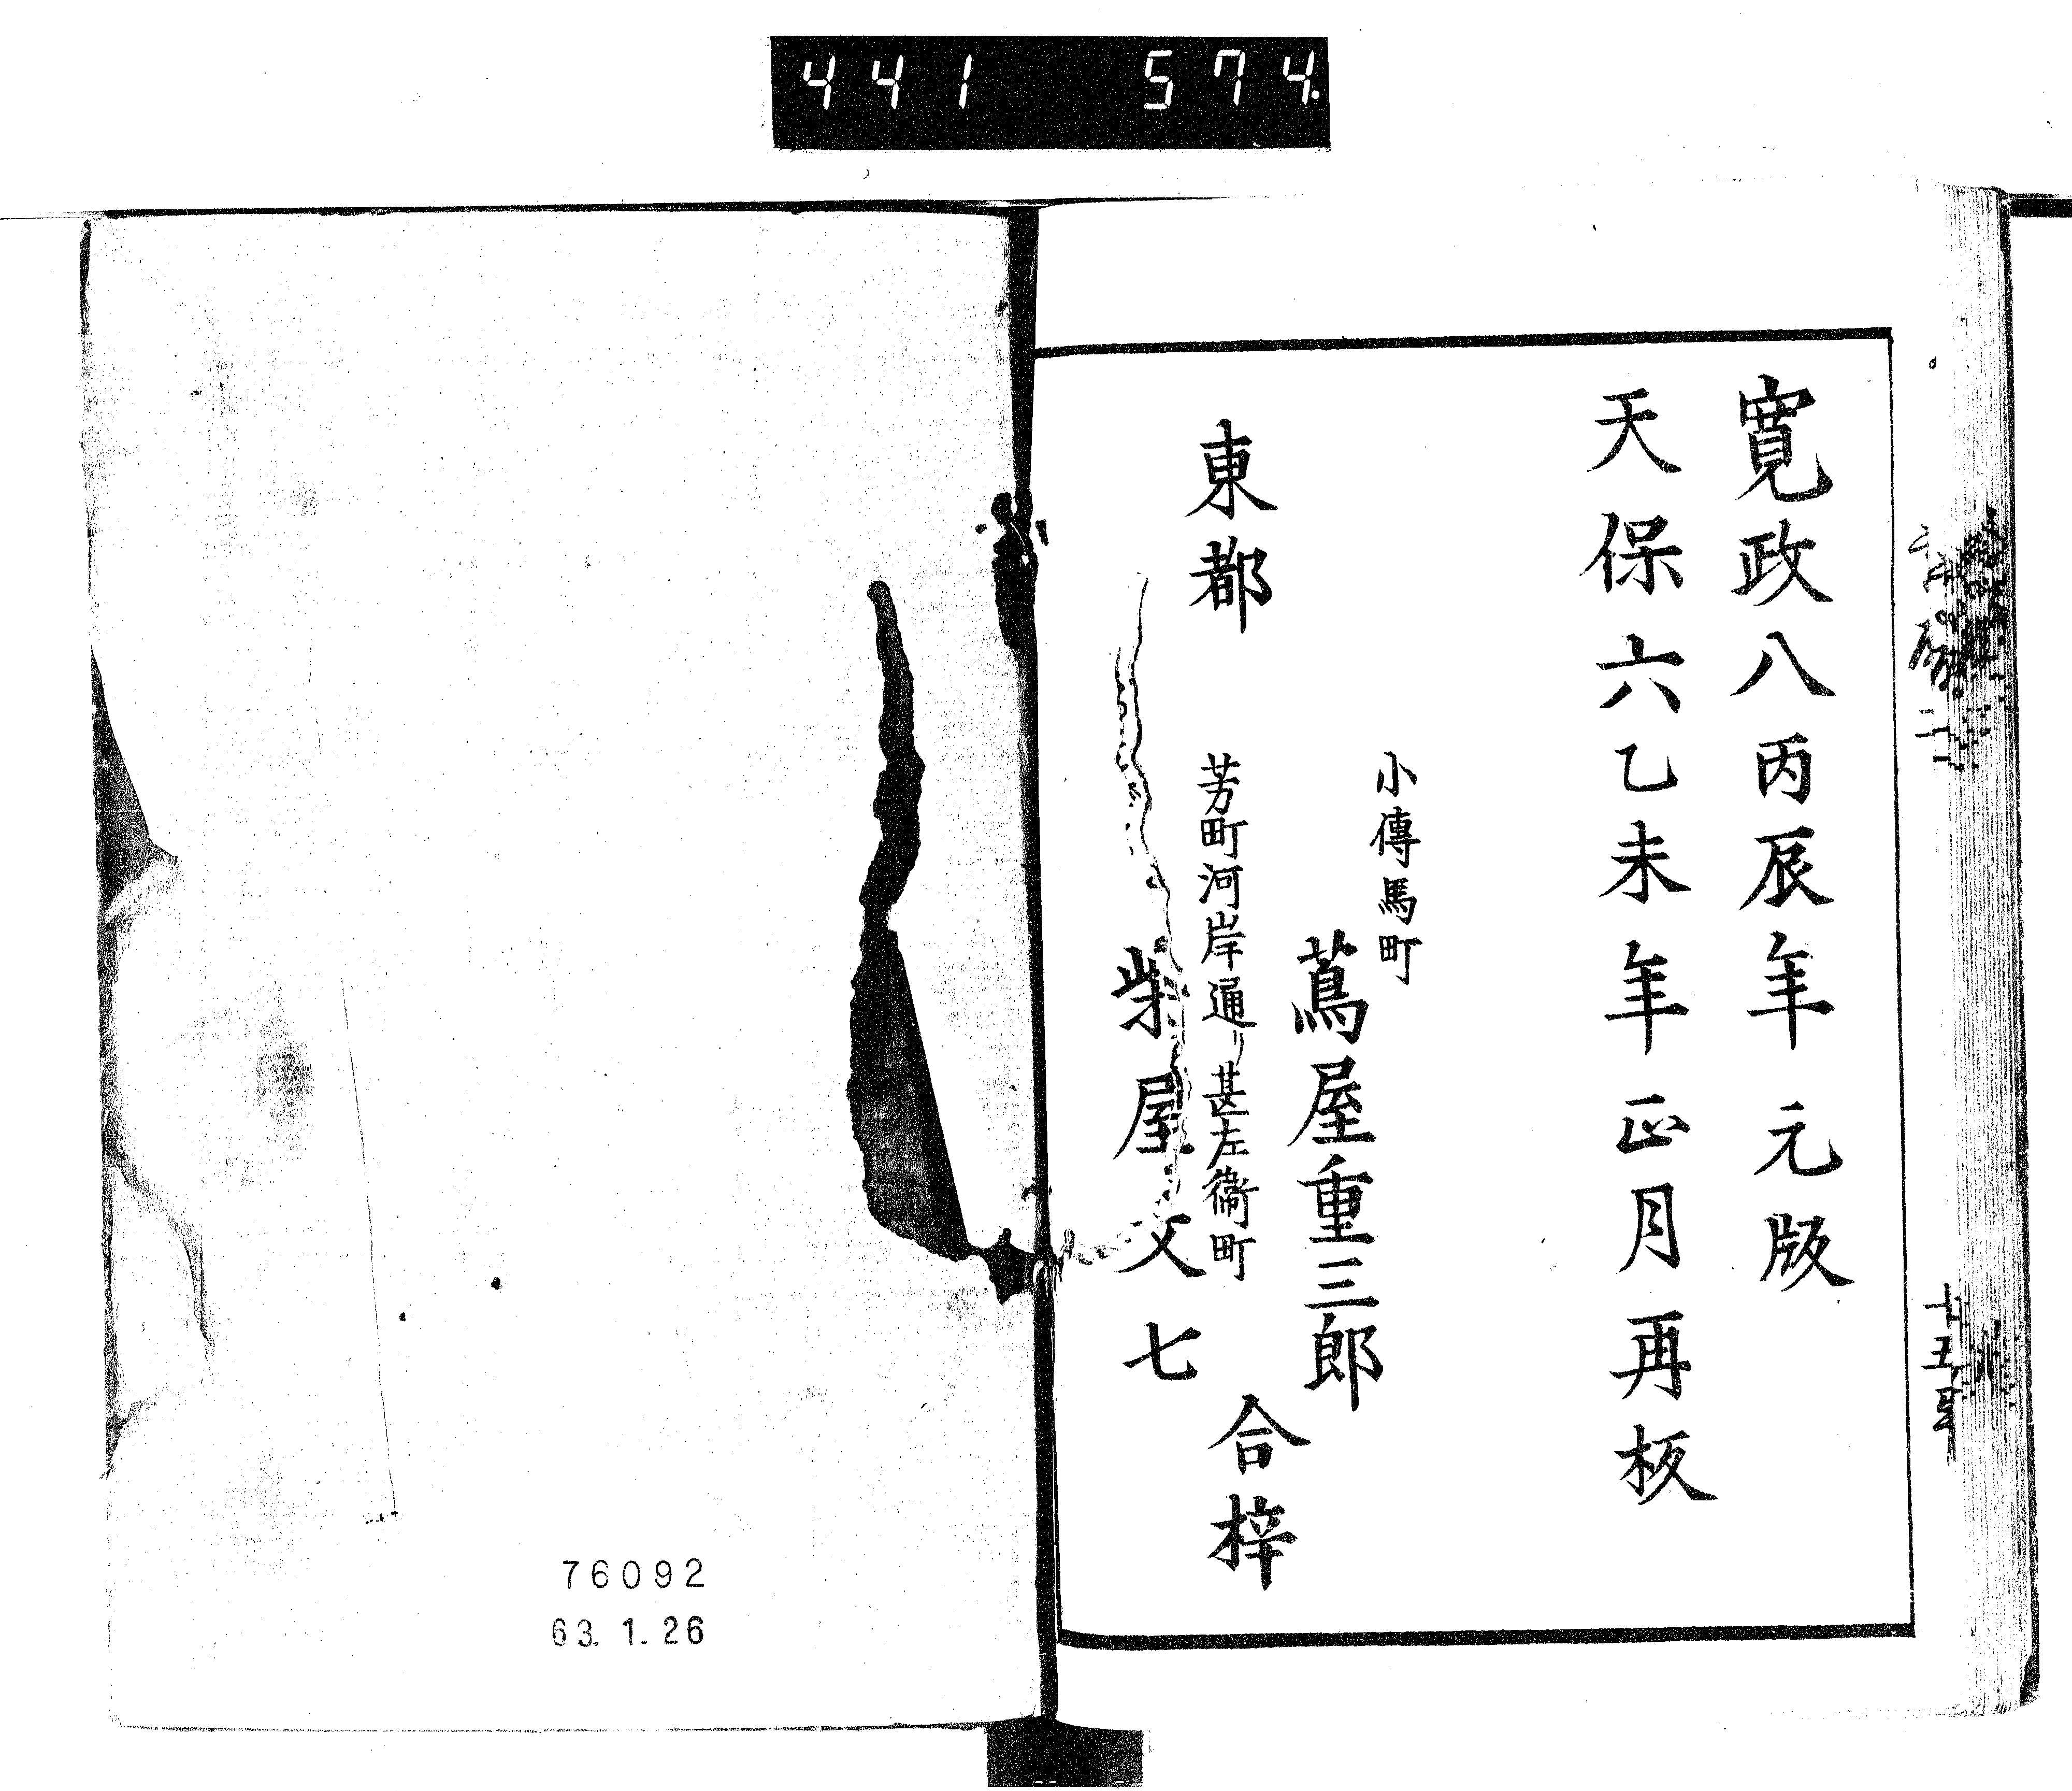 441 574.
寛政八丙辰年元版
天保六乙未年正月再板
小傳馬町
蔦屋重三郎
東都
芳町河岸通リ甚左衞町
柴屋文七
合梓
二
廿五
76092
63.1.26